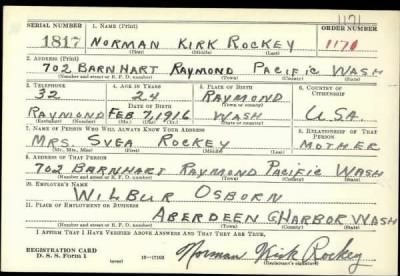 1171
SERIAL NUMBER 1. NAME (Print) ORDER NUMBER
1817 NORMAN KIRK ROCKEY 1170
(First) (Middle) (Last)
2. ADDRESS (Print)
702 BARNHART RAYMOND PACIFIC WASH
(Number and street or R. F. D. number) (Town) (County) (State)
3. TELEPHONE 4. AGE IN YEARS 5. PLACE OF BIRTH 6. COUNTRY OF CITIZENSHIP
32 24 RAYMOND
DATE OF BIRTH (Town or county)
RAYMOND FEB 7, 1916 WASH U.S.A.
(Exchange) (Number) (Mo.) (Day) (Yr.) (State or country)
7. NAME OF PERSON WHO WILL ALWAYS KNOW YOUR ADDRESS 8. RELATIONSHIP OF THAT PERSON
MRS. SVEA ROCKEY MOTHER
(Mr., Mrs., Miss) (First) (Middle) (Last)
9. ADDRESS OF THAT PERSON
702 BARNHART RAYMOND PACIFIC WASH
(Number and street or R. F. D. number) (Town) (County) (State)
10. EMPLOYER'S NAME
WILBUR OSBORN
11. PLACE OF EMPLOYMENT OR BUSINESS
ABERDEEN G HARBOR WASH
(Number and street or R. F. D. number) (Town) (County) (State)
I AFFIRM THAT I HAVE VERIFIED ABOVE ANSWERS AND THAT THEY ARE TRUE.
REGISTRATION CARD
D. S. S. Form 1 (over) Norman Kirk Rockey
(Registrant's signature)